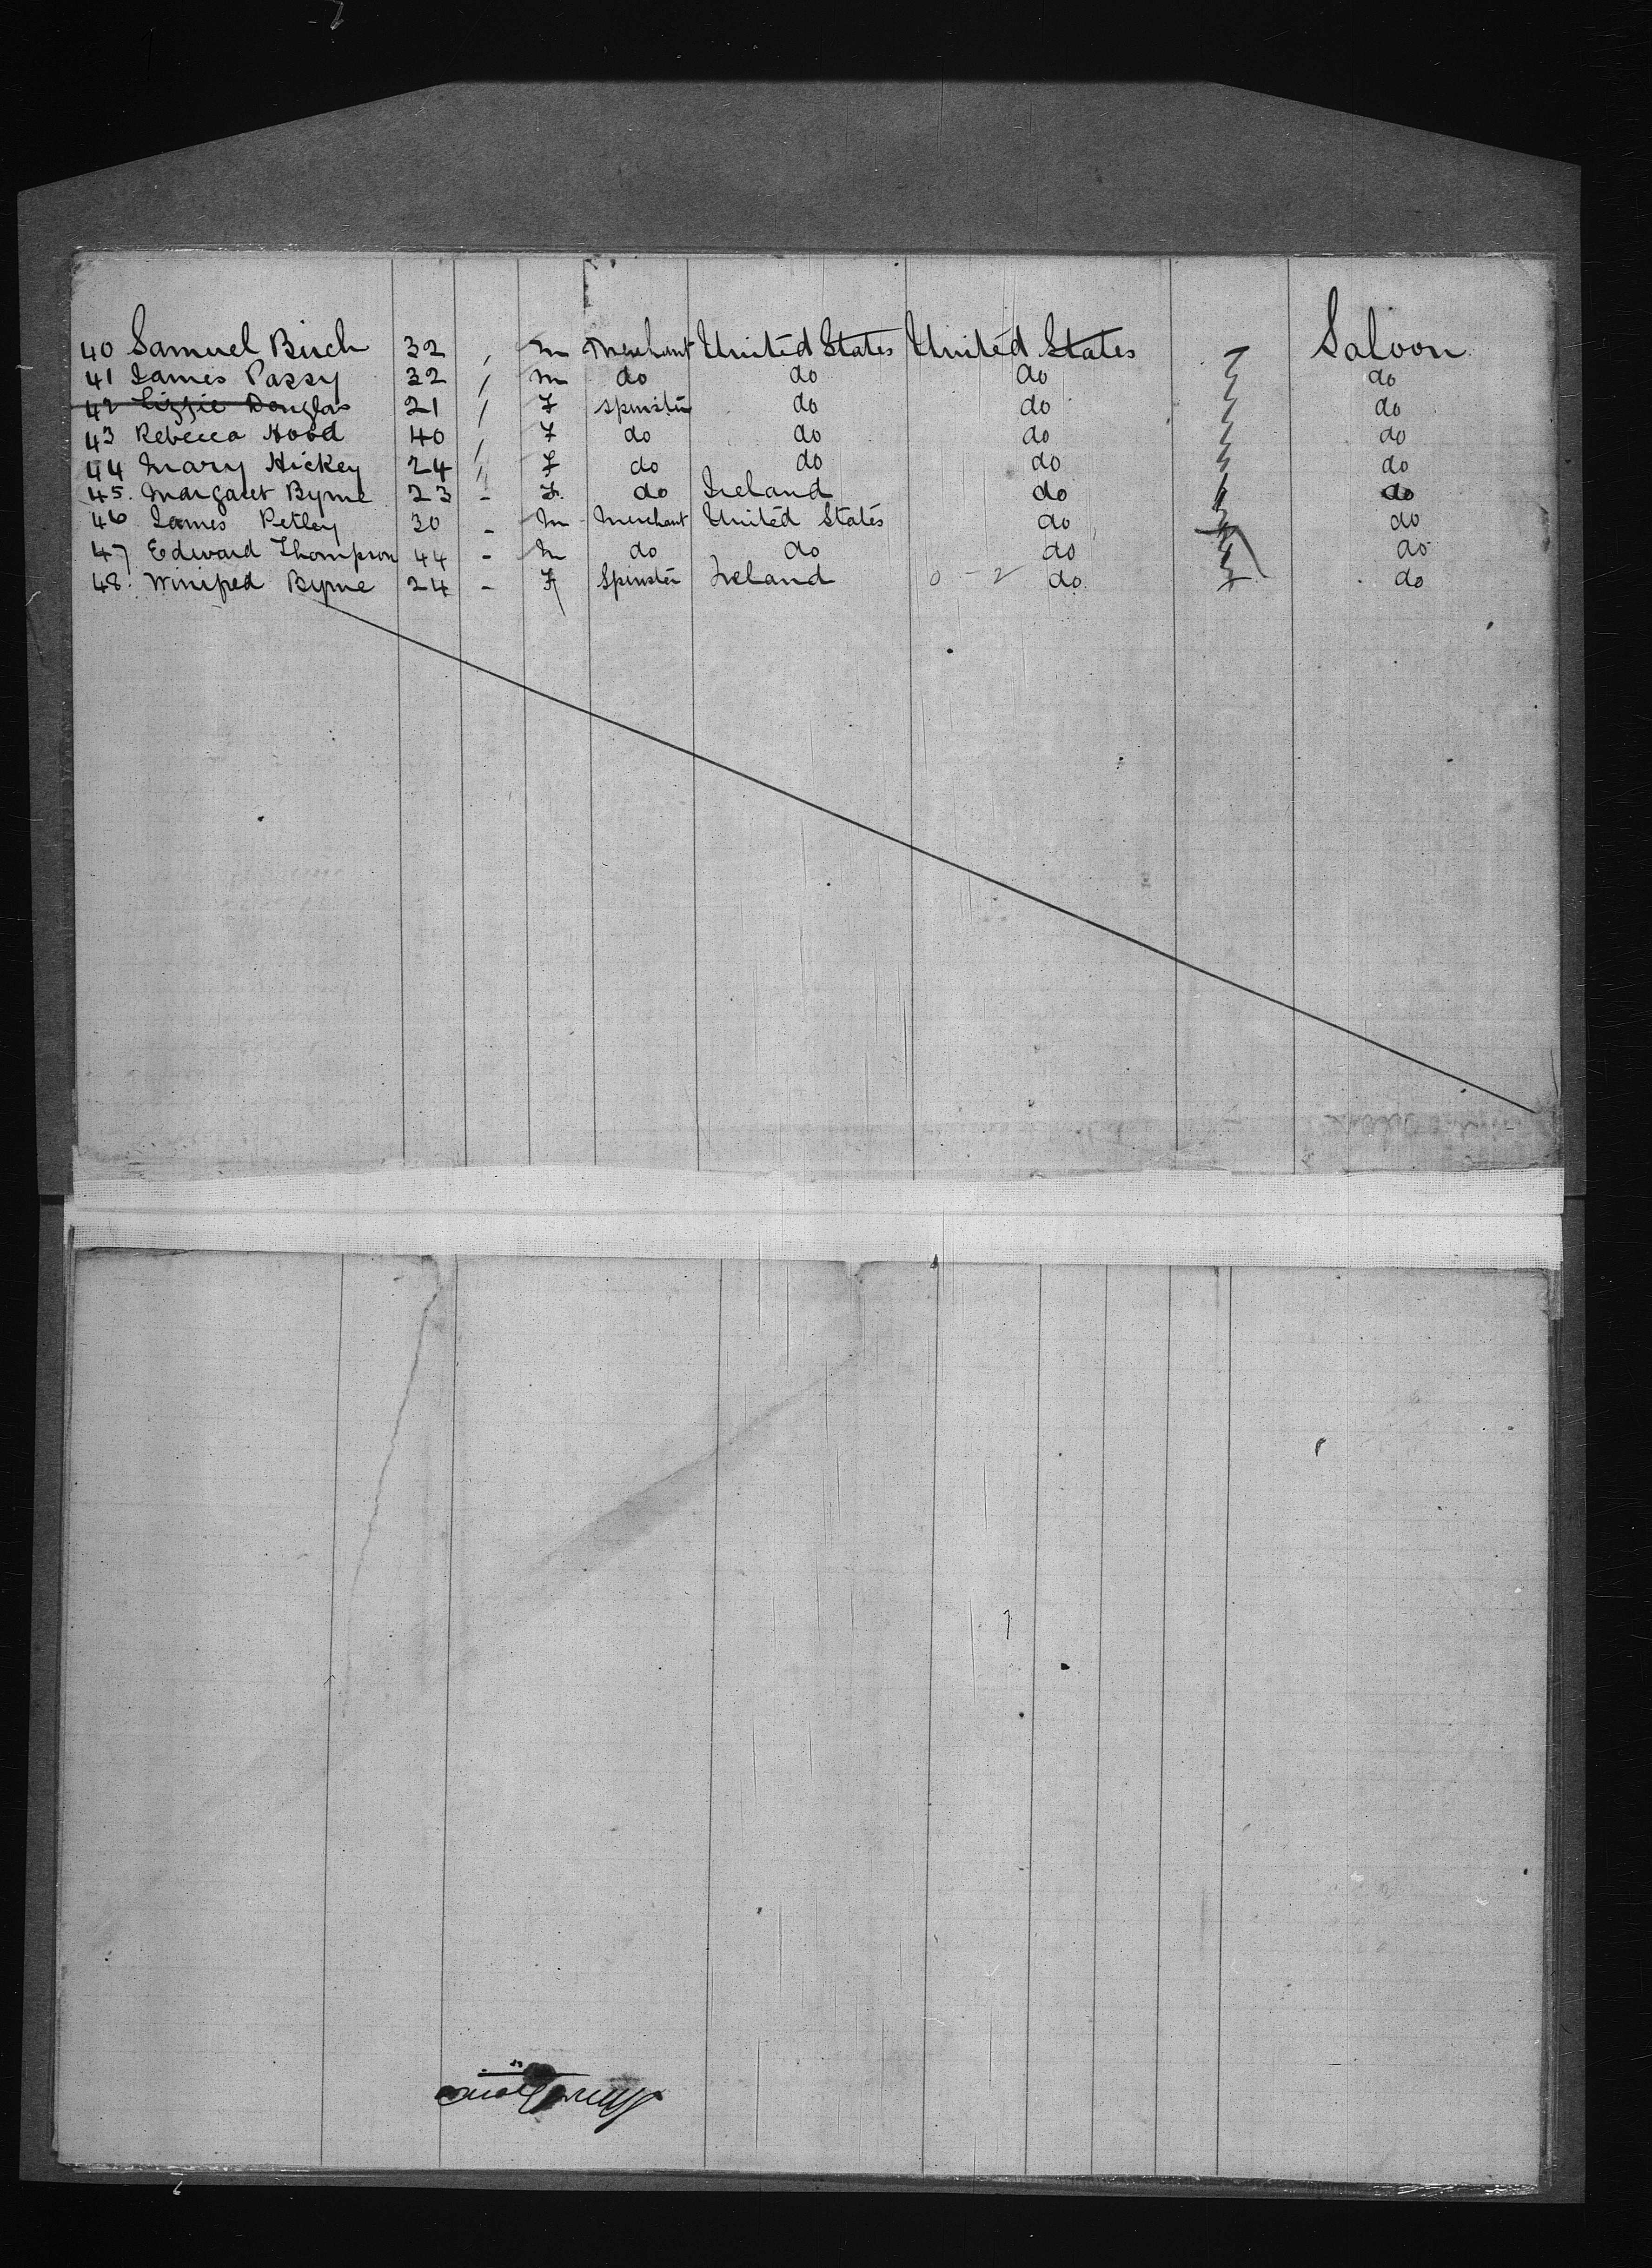 40 Samuel Birch 32 , M Merchant United States United States Saloon
41 James Passy 32 , M do do do do
42 Lizzie Douglas 21 , F Spinster do do do
43 Rebecca Hood 40 , F do do do do
44 Mary Hickey 24 , F do do do do
45. Margaret Byrne 23 - F. do Ireland do do
46 James Petley 30 - M Merchant United States do do
47 Edward Thompson 44 - M do do do do
48. Winifred Byrne 24 - F Spinster Ireland 0 - 2 do do